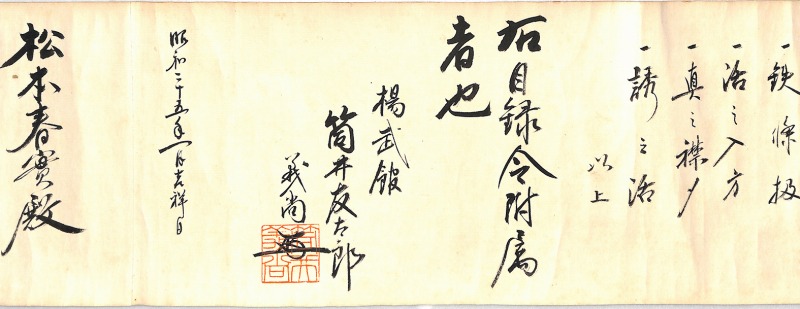 一 鉄條扱
一 活之入方
一 真之襟〆
一 誘之活
以上
右目録令附属
者也
楊武館
筒井友太郎
義尚
昭和二十五年一月吉祥日
松本春實殿